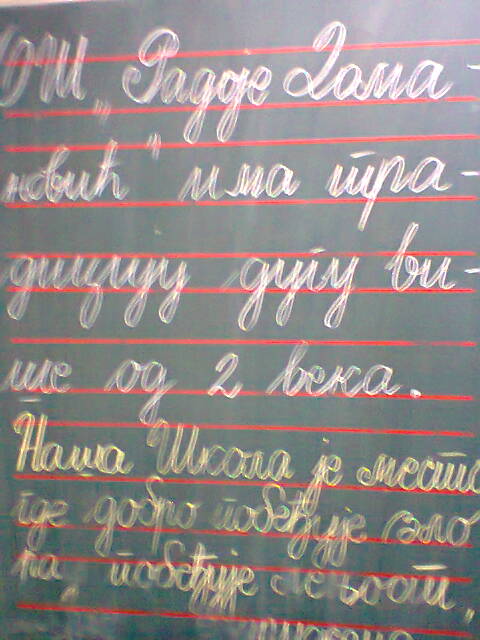 ОШ „Радоје Дома-
новић" има тра-
дицију дугу ви-
ше од 2 века.
Наша Школа је место
где добро побеђује зло
побеђује